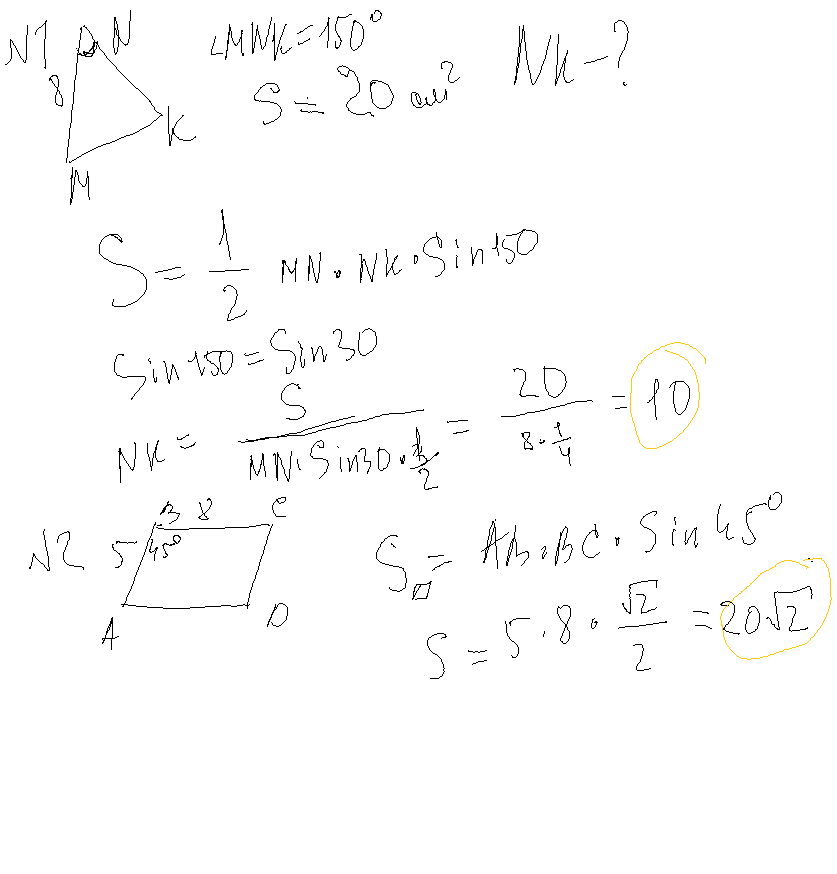 N1 N ∠MNK=150° NK-?
8 S=20 см²
K
M
S=1/2 MN·NK·Sin150
Sin150=Sin30
NK=S/(MN·Sin30·1/2)=20/(8·1/4)=10
N2 B 8 C
5 45° S▱=AB·BC·Sin45°
A D
S=5·8·√2/2=20√2